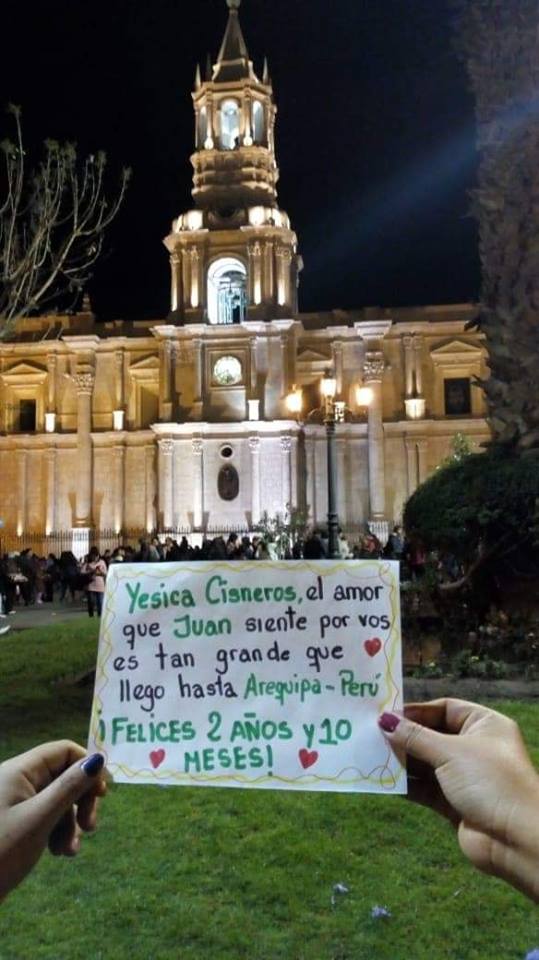 Yesica Cisneros, el amor
que Juan siente por vos
es tan grande que
llego hasta Arequipa - Perú
¡FELICES 2 AÑOS y 10
MESES!